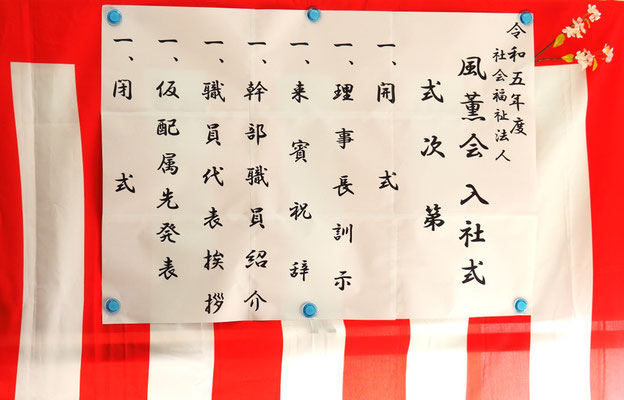 令和五年度
社会福祉法人
風薫会入社式
式次第
一、開式
一、理事長訓示
一、来賓祝辞
一、幹部職員紹介
一、職員代表挨拶
一、仮配属先発表
一、閉式